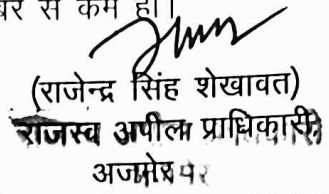 बर से कम हो।
(राजेन्द्र सिंह शेखावत)
राजस्व अपील प्राधिकारी
अजमेर